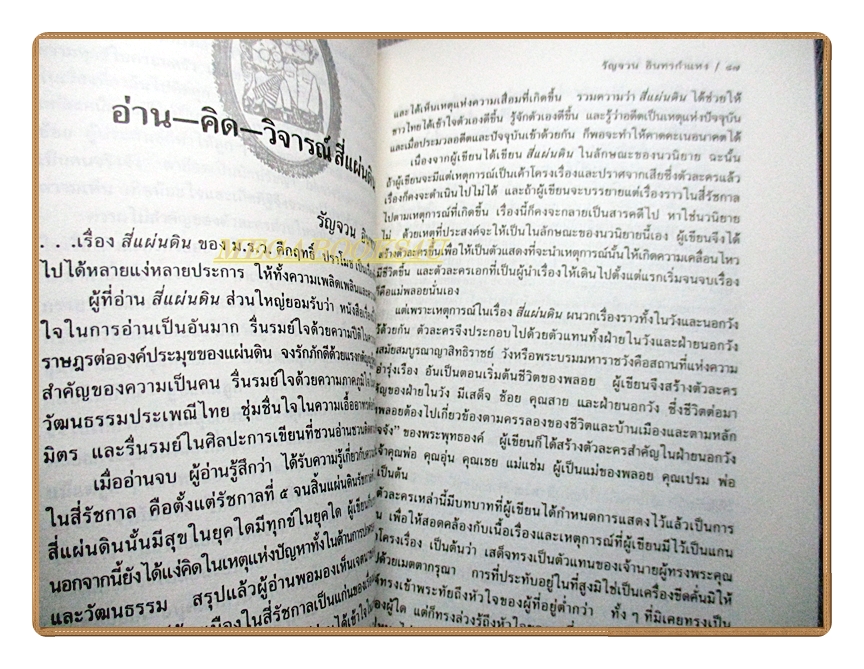 อ่าน—คิด—วิจารณ์ สี่แผ่นดิน
รัญจวน
. . .เรื่อง สี่แผ่นดิน ของ ม.ร.ว. คึกฤทธิ์ ปราโมช
ไปได้หลายแง่หลายประการ ให้ทั้งความเพลิดเพลินและ
ผู้ที่อ่าน สี่แผ่นดิน ส่วนใหญ่ยอมรับว่า หนังสือเรื่อง
ใจในการอ่านเป็นอันมาก รื่นรมย์ใจด้วยความปีติ
ราษฎรต่อองค์ประมุขของแผ่นดิน จงรักภักดีด้วยแรง
สำคัญของความเป็นคน รื่นรมย์ใจด้วยความภาคภูมิใจ
วัฒนธรรมประเพณีไทย ชุ่มชื่นใจในความเอื้ออาทร
มิตร และรื่นรมย์ในศิลปะการเขียนที่ชวนอ่านชวนติดตาม
เมื่ออ่านจบ ผู้อ่านรู้สึกว่า ได้รับความรู้เกี่ยวกับ
ในสี่รัชกาล คือตั้งแต่รัชกาลที่ ๕ จนสิ้นแผ่นดินรัชกาล
สี่แผ่นดินนั้นมีสุขในยุคใดมีทุกข์ในยุคใด ผู้เขียน
นอกจากนี้ยังได้แง่คิดในเหตุแห่งปัญหาทั้งในด้านการ
และวัฒนธรรม สรุปแล้วผู้อ่านพอมองเห็น
เมืองในสี่รัชกาลเป็นแก่นของเรื่อง
ได้เข้าใจ
MEGABOOKSAT
รัญจวน อินทรกำแหง / ๔๗
และได้เห็นเหตุแห่งความเสื่อมที่เกิดขึ้น รวมความว่า สี่แผ่นดิน ได้ช่วยให้
ชาวไทยได้เข้าใจตัวเองดีขึ้น รู้จักตัวเองดีขึ้น และรู้ว่าอดีตเป็นเหตุแห่งปัจจุบัน
และเมื่อประมวลอดีตและปัจจุบันเข้าด้วยกัน ก็พอจะทำให้คาดคะเนอนาคตได้
เนื่องจากผู้เขียนได้เขียน สี่แผ่นดิน ในลักษณะของนวนิยาย ฉะนั้น
ถ้าผู้เขียนจะมีแต่เหตุการณ์เป็นเค้าโครงเรื่องและปราศจากเสียซึ่งตัวละครแล้ว
เรื่องก็คงจะดำเนินไปไม่ได้ และถ้าผู้เขียนจะบรรยายแต่เรื่องราวในสี่รัชกาล
ไปตามเหตุการณ์ที่เกิดขึ้น เรื่องนี้ก็คงจะกลายเป็นสารคดีไป หาใช่นวนิยาย
ไม่ ด้วยเหตุที่ประสงค์จะให้เป็นในลักษณะของนวนิยายนี้เอง ผู้เขียนจึงได้
สร้างตัวละครขึ้นเพื่อให้เป็นตัวแสดงที่จะนำเหตุการณ์นั้นให้เกิดความเคลื่อนไหว
มีชีวิตขึ้น และตัวละครเอกที่เป็นผู้นำเรื่องให้เดินไปตั้งแต่แรกเริ่มจนจบเรื่อง
ก็คือแม่พลอยนั่นเอง
แต่เพราะเหตุการณ์ในเรื่อง สี่แผ่นดิน ผนวกเรื่องราวทั้งในวังและนอกวัง
ไว้ด้วยกัน ตัวละครจึงประกอบไปด้วยตัวแทนทั้งฝ่ายในวังและฝ่ายนอกวัง
สมัยสมบูรณาญาสิทธิราชย์ วังหรือพระบรมมหาราชวังคือสถานที่แห่งความ
รุ่งเรือง อันเป็นตอนเริ่มต้นชีวิตของพลอย ผู้เขียนจึงสร้างตัวละคร
ของฝ่ายในวัง มีเสด็จ ช้อย คุณสาย และฝ่ายนอกวัง ซึ่งชีวิตต่อมา
พลอยต้องไปเกี่ยวข้องตามครรลองของชีวิตและบ้านเมืองและตามหลัก
ของพระพุทธองค์ ผู้เขียนก็ได้สร้างตัวละครสำคัญในฝ่ายนอกวัง
เจ้าคุณพ่อ คุณอุ่น คุณเชย แม่แช่ม ผู้เป็นแม่ของพลอย คุณเปรม พ่อ
เป็นต้น
ตัวละครเหล่านี้มีบทบาทที่ผู้เขียนได้กำหนดการแสดงไว้แล้วเป็นการ
เพื่อให้สอดคล้องกับเนื้อเรื่องและเหตุการณ์ที่ผู้เขียนมีไว้เป็นแกน
โครงเรื่อง เป็นต้นว่า เสด็จทรงเป็นตัวแทนของเจ้านายผู้ทรงพระคุณ
ด้วยเมตตากรุณา การที่ประทับอยู่ในที่สูงมิใช่เป็นเครื่องขีดคั่นมิให้
ทรงเข้าพระทัยถึงหัวใจของผู้ที่อยู่ต่ำกว่า ทั้ง ๆ ที่มิเคยทรงเป็น
ผู้ใด แต่ก็ทรงล่วงรู้ถึงหัวใจ